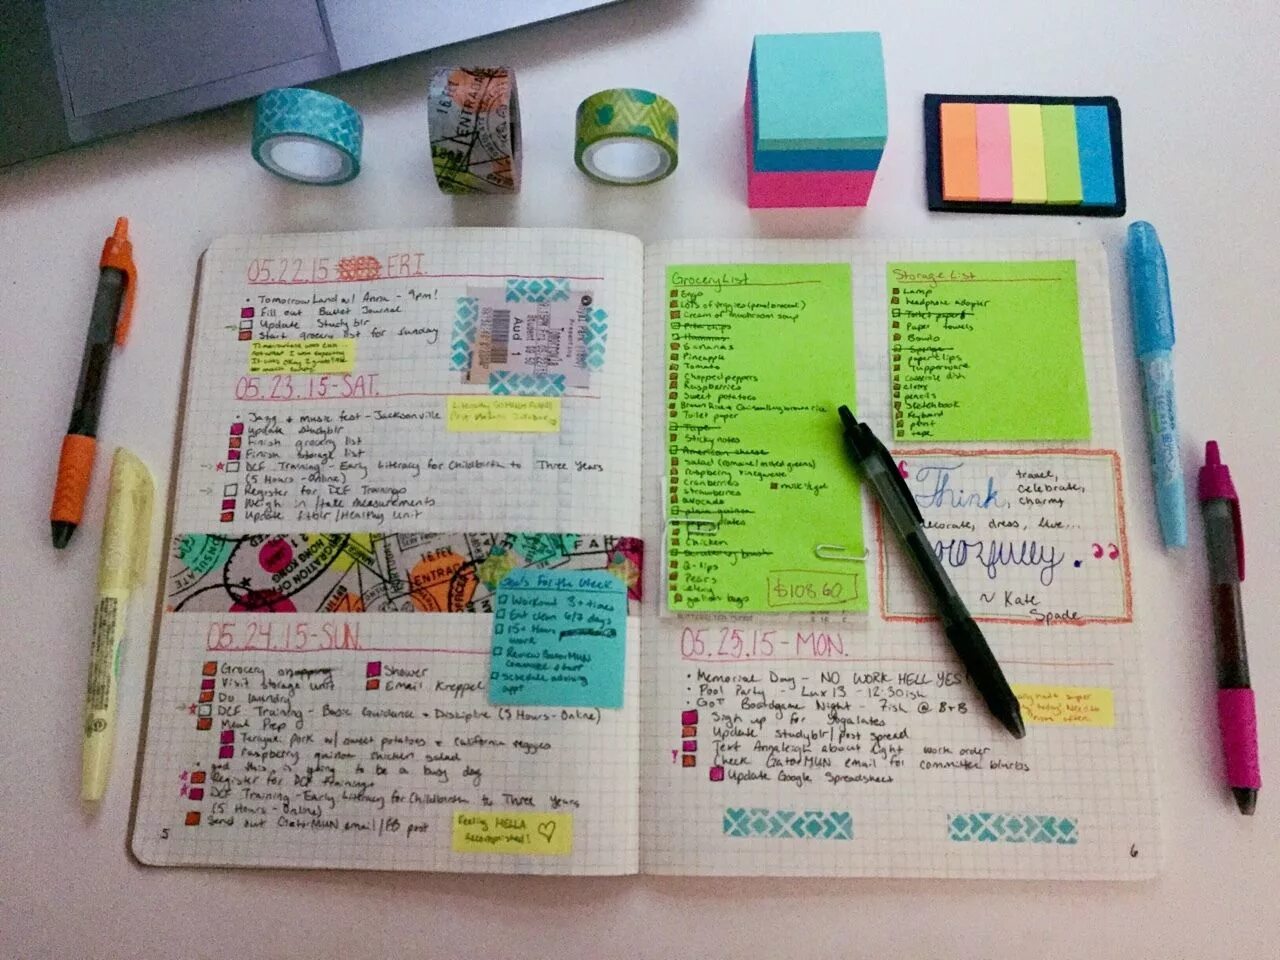 05.22.15 FRI.
• Tomorrowland w/ Anna - 9pm!
Fill out Bullet Journal
Update Studyblr
Start grocery list for Sunday
05.23.15-SAT.
• Jazz + Music fest - Jacksonville
Update Studyblr
Finish grocery list
Finish storage list
DCF Training - Early Literacy for Childbirth to Three Years
(5 Hours - Online)
Register for DCF Trainings
Weigh in/take measurements
Update fitblr/Healthy Unit
Aud 1
ENTRADA
16 FEV
Goals For the Week
Workout 3+ times
Eat clean 6/7 days
15+ Hours
work
Review GatorMUN
committee stuff
Schedule advising
appt
05.24.15-SUN.
Grocery
Visit storage unit
Do laundry
Shower
Email Kreppel
DCF Training - Basic Guidance + Discipline (5 Hours-Online)
Meal Prep
Teriyaki pork w/ sweet potatoes + California veggies
Raspberry quinoa chicken salad
• god this is going to be a busy day
Register for DCF Trainings
DCF Training - Early Literacy for Childbirth to Three Years
(5 Hours - Online)
Send out GatorMUN email/FB post
Feeling HELLA
Accomplished!
5
Grocery List
Eggo
Lots of veggies
Cream of mushroom soup
Pita chips
Hummus
Bananas
Pineapple
Tomato
Chopped peppers
Raspberries
Sweet potatoes
Brown Rice
Toilet paper
Tape
Sticky notes
American cheese
Salad (romaine/mixed greens)
Raspberry vinegarette
Cranberries
Strawberries
avocado
plates
Chicken
Q-tips
Pears
celery
garbage bags
$108.60
Storage List
Lamp
headphone adapter
Toilet paper
Paper towels
Bowls
Sponge
paperclips
Tupperware
casserole dish
pencils
Sketchbook
Keyboard
print
tape
"Think,
travel,
celebrate,
charm,
decorate, dress, live...
colorfully."
~ Kate
Spade
05.25.15-MON.
• Memorial Day - NO WORK HELL YES!
• Pool Party - Lux 13 - 12:30ish
• GoT Boardgame Night - 7ish @ B+B
Sign up for yogalates
Update studyblr/post spread
Text Angaleigh about light work order
Check GatorMUN email for committee blurbs
Update Google Spreadsheet
6